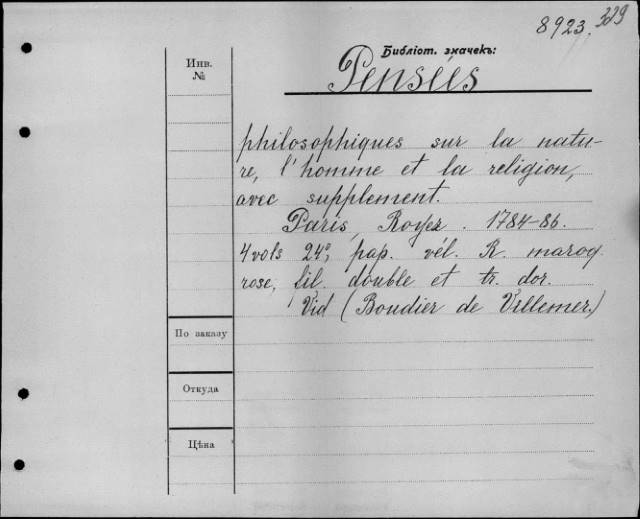 8923. 339
Библіот. значекъ:
Pensées
Инв.
№
philosophiques sur la natu-
re, l'homme et la religion,
avec supplement.
Paris, Royez. 1784-86.
4 vols 24°, pap. vél. R. maroq.
rose, fil. double et tr. dor.
Vid (Boudier de Villemer.)
По заказу
Откуда
Цѣна